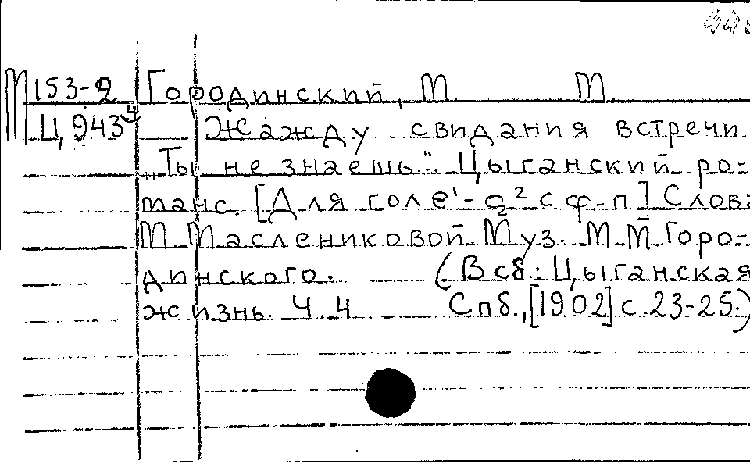 М 153-2 Городинский, М. М.
Ц 943 Жажду свидания встречи.
„Ты не знаешь". Цыганский ро-
манс. [Для голе¹-g² с ф-п] Слова
М. Маслениковой. Муз. М.М. Горо-
динского. (В сб.: Цыганская
жизнь. Ч. 4 Спб., [1902] с. 23-25.)